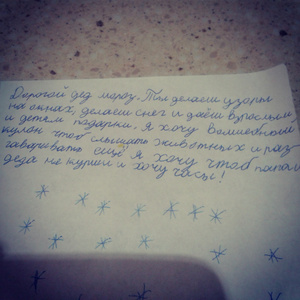 Дорогой дед мороз. Ты делаеш узоры
на окнах, делаеш снег и даёш взрослым
и детям подарки. Я хочу волшебный
кулон чтоб слышать животных и раз
гаваривать ещё я хочу чтоб
деда не курил и хочу часы!